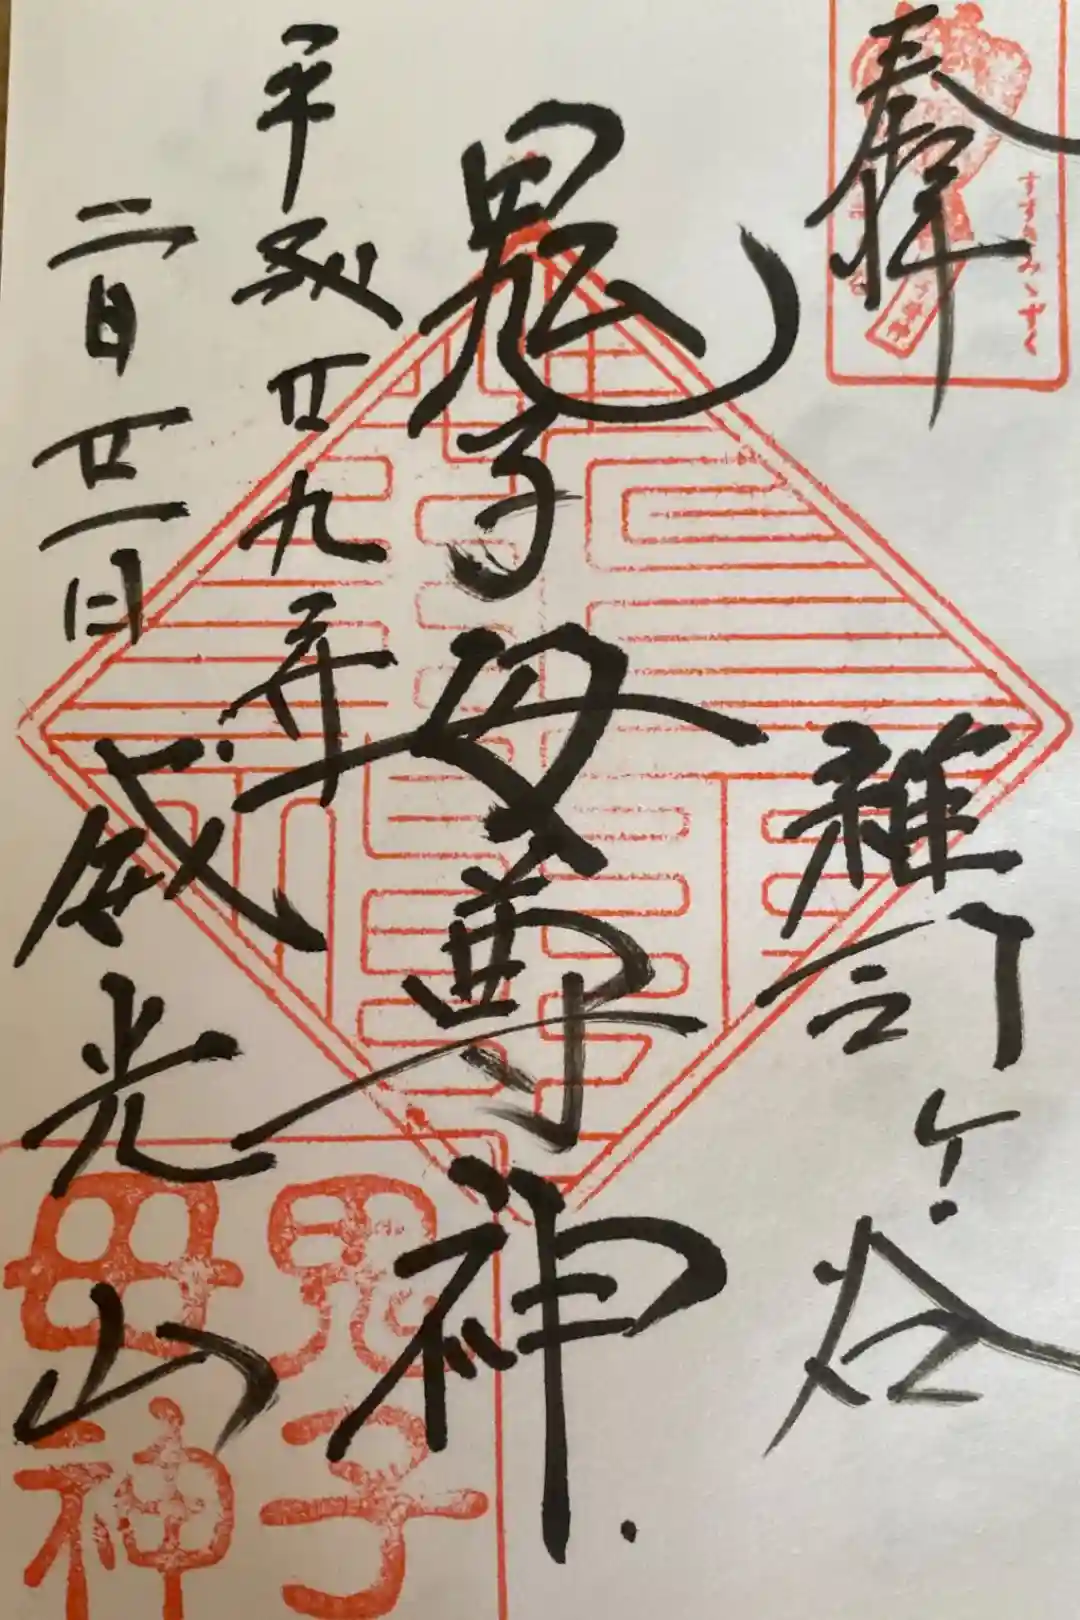 奉拝
すすきみゝずく
雑司ケ谷
鬼子母尊神
平成廿九年
二月廿一日
威光山
鬼子
母神